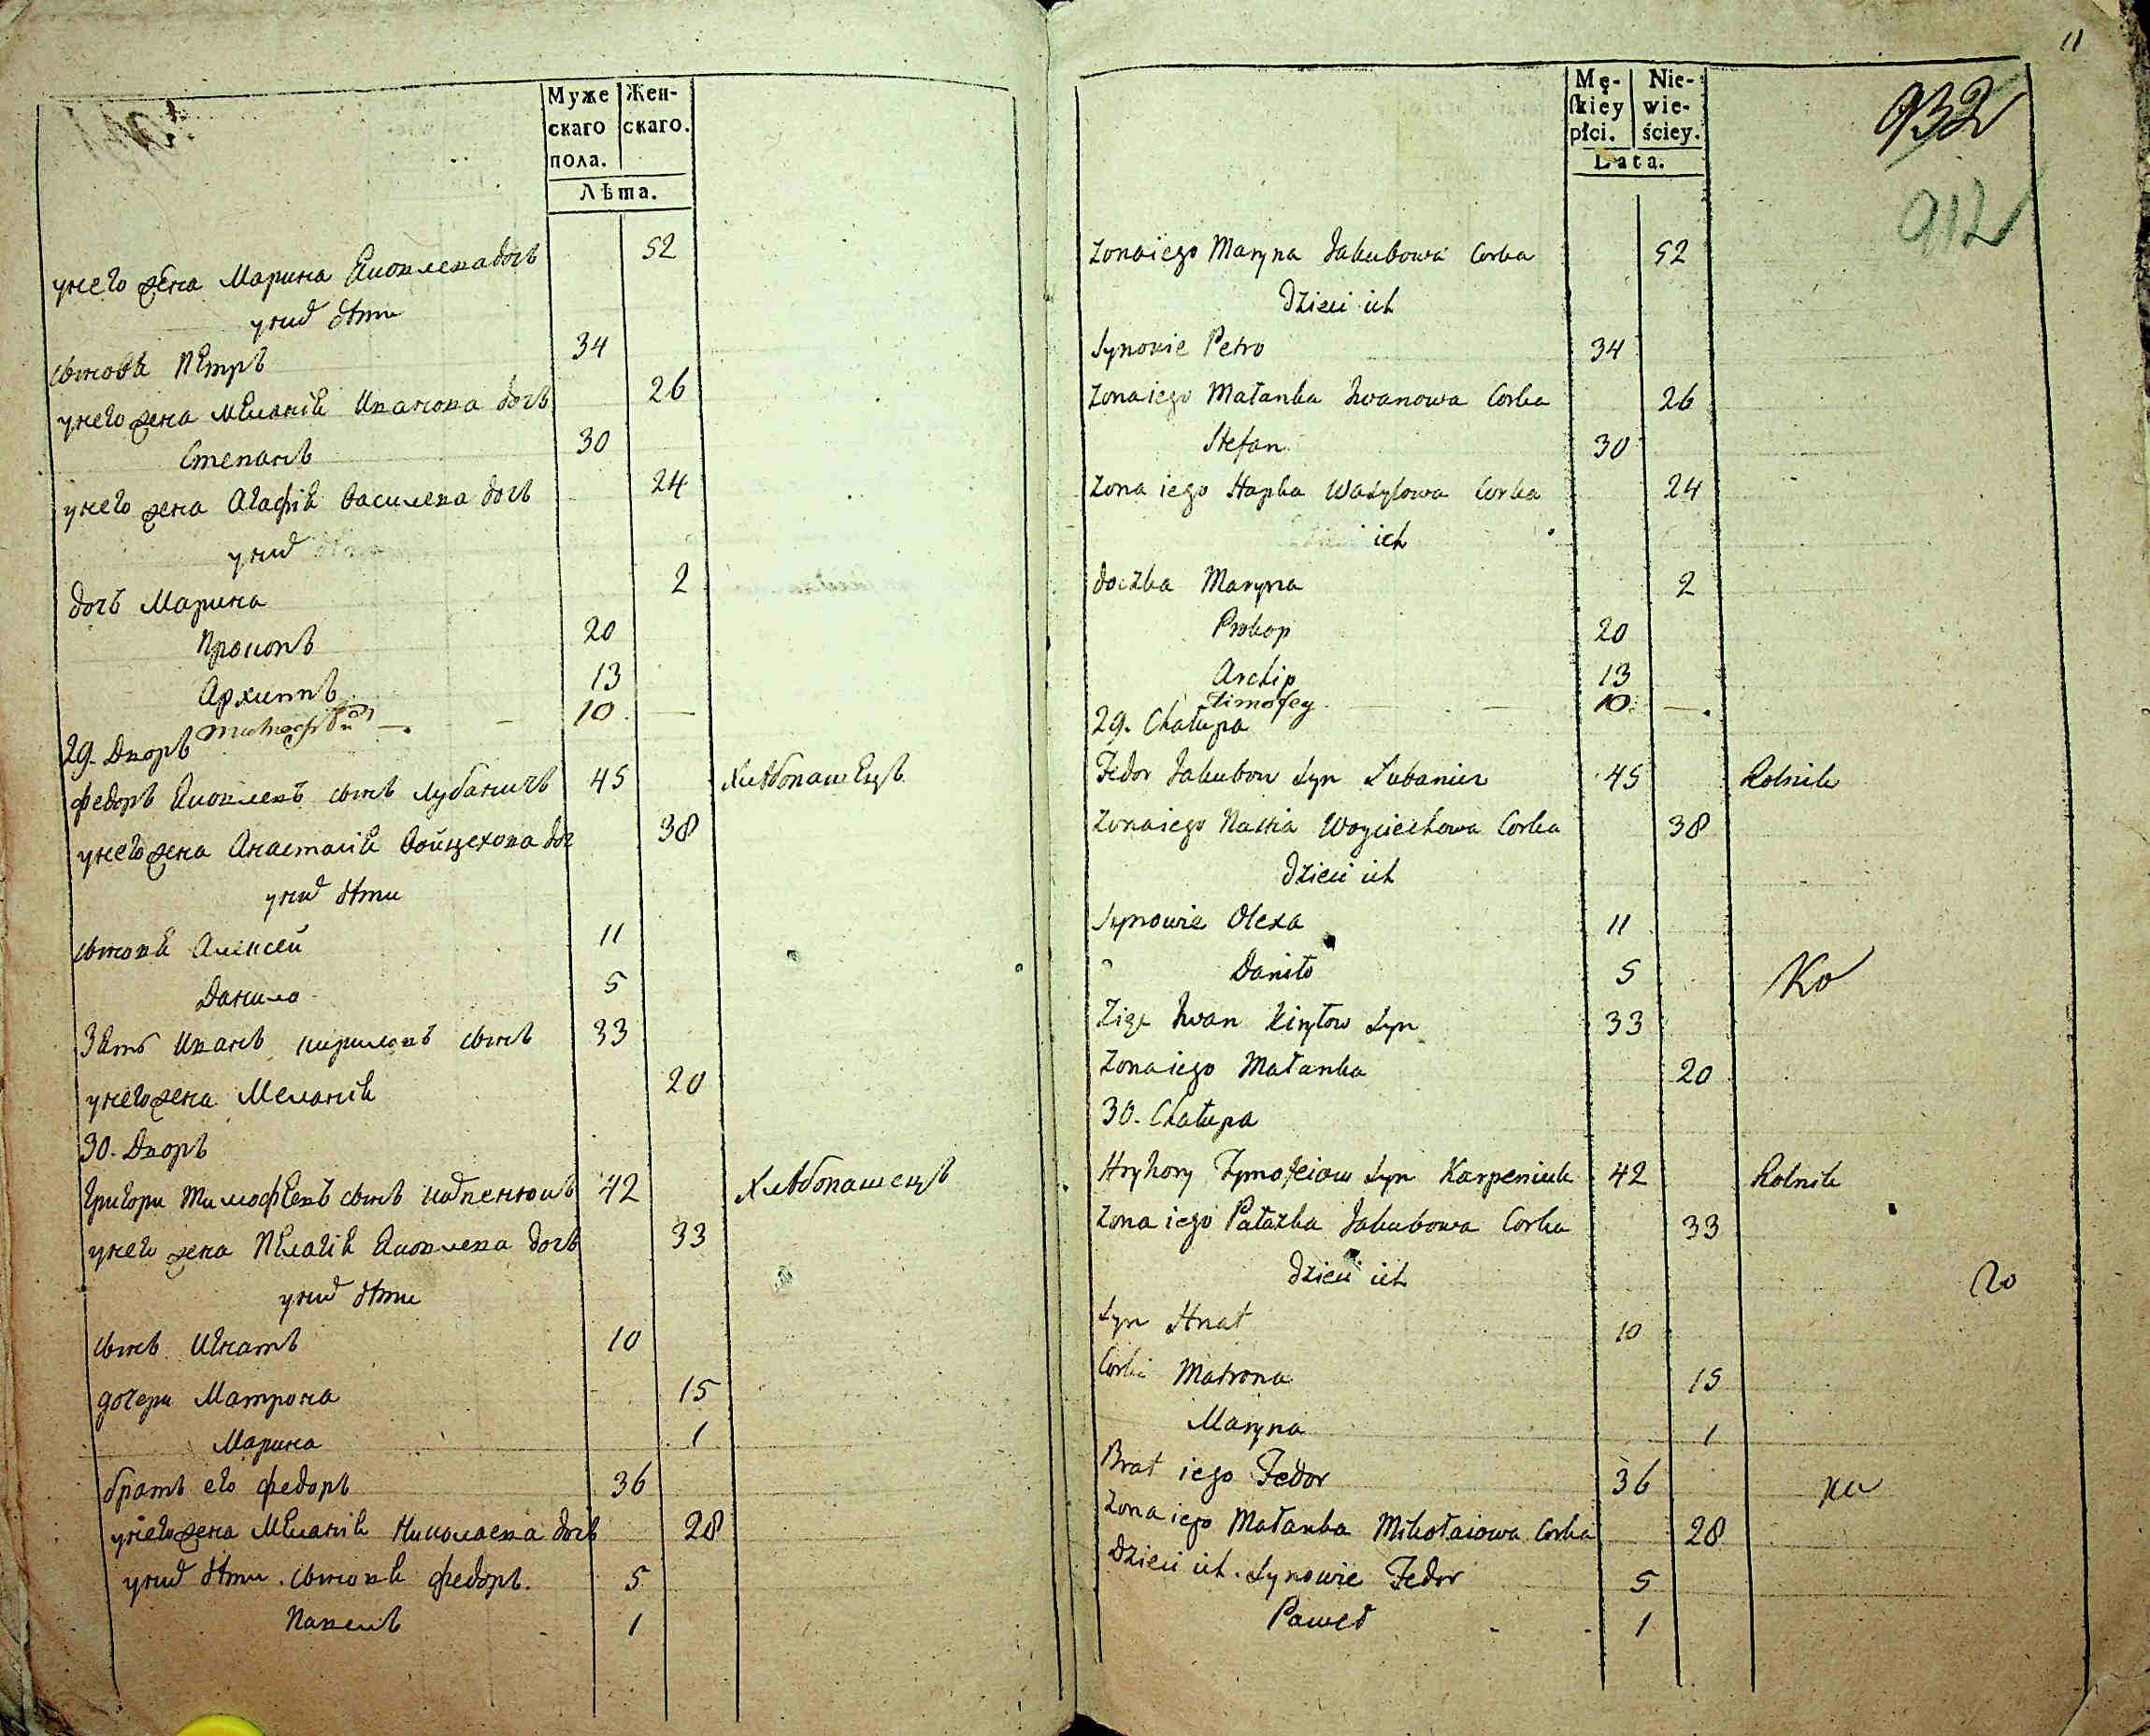 Муже
скаго
пола.
Жен-
скаго.
Лѣта.
у него жена Марина Яковлева дочь 52
у них дѣти
сыновя Петръ 34
у него жена Меланія Иванова дочь 26
Степанъ 30
у него жена Агафія Василева дочь 24
у них дѣти
дочь Марина 2
Прокопъ 20
Архиппъ 13
Тимофѣй — 10 —
29. Дворъ
Федоръ Яковлевъ сынъ Лубаничъ 45 Хлѣбопашецъ
у него жена Анастасія Войцехова доч 38
у них дѣти
сыновя Алексей 11
Данило 5
Зять Иванъ Кириловъ сынъ 33
у него жена Меланія 20
30. Дворъ
Григори Тимофеевъ сынъ 42 Хлѣбопашецъ
у него жена Пелагія Яковлева дочь 33
у них дѣти
сынъ Игнатъ 10
дочери Матрона 15
Марина 1
братъ его Федоръ 36
у него жена Меланія Николаева дочь 28
у них дѣти. сыновя Федоръ. 5
Павелъ 1
11
Mę-
skiey
płci.
Nie-
wie-
ściey.
Lata.
932
912
Zona iego Maryna Jakubowa Corka 52
Dzieci ich
Synowie Petro 34
Zona iego Małanka Iwanowa Corka 26
Stefan 30
Zona iego Hapka Wasylowa Corka 24
Dzieci ich
doczka Maryna 2
Prokop 20
Archip 13
Timofey — 10 —
29. Chałupa
Fedor Jakubow Syn Lubanicz 45 Rolnik
Zona iego Nastia Woyciechowa Corka 38
Dzieci ich
Synowie Olexa 11
Daniło 5 Ko
Zięc Iwan Kiryłow Syn 33
Zona iego Małanka 20
30. Chałupa
Hryhory Tymofeiow Syn Karpeniuk 42 Rolnik
Zona iego Pałazka Jakubowa Corka 33
Dzieci ich
Syn Hnat 10
Corki Matrona 15
Maryna 1
Brat iego Fedor 36
Zona iego Małanka Mikołaiowa Corka 28
Dzieci ich. Synowie Fedor 5
Paweł 1